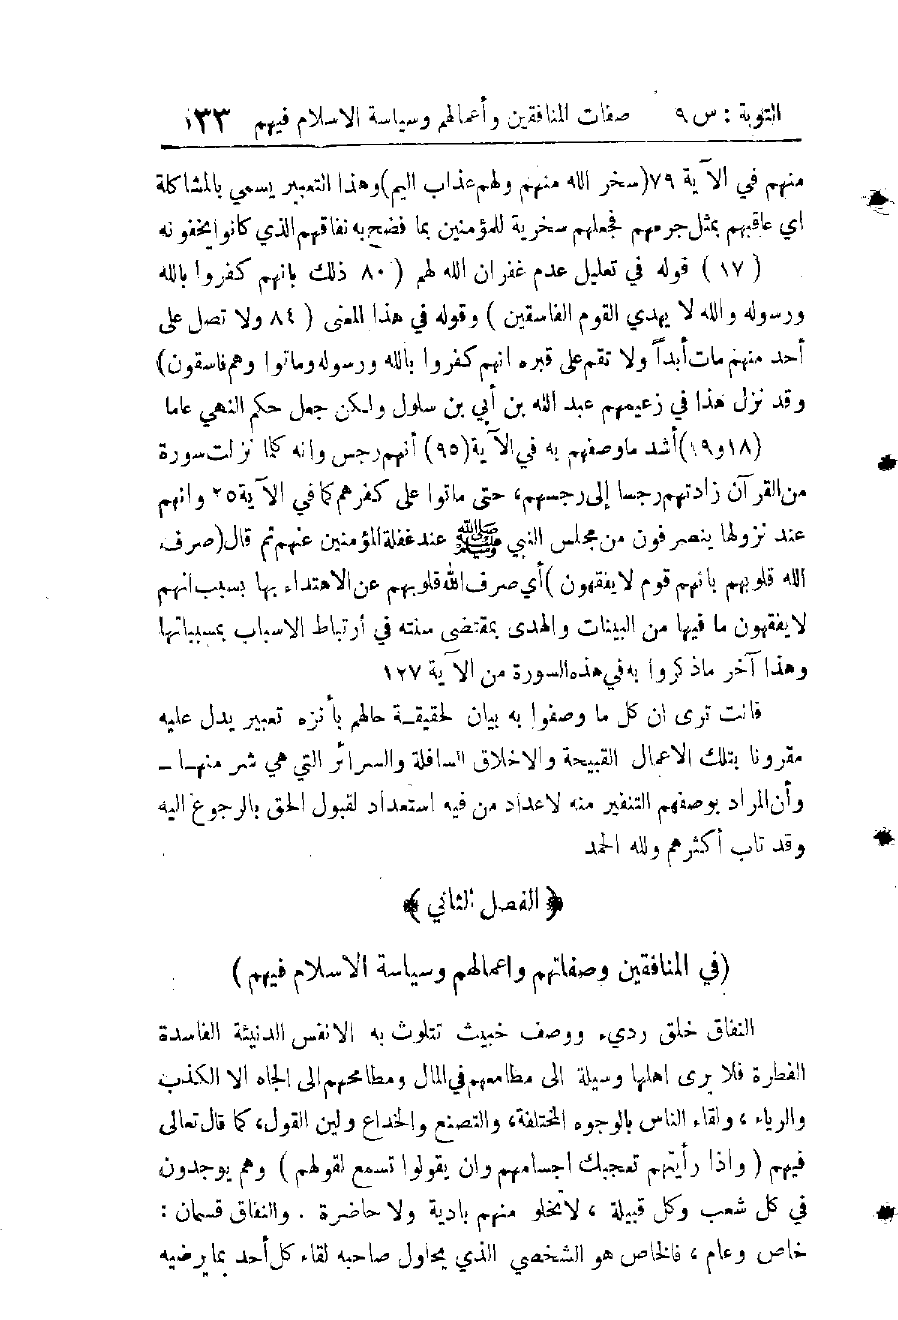 التوبة : س ٩ صفات المنافقين وأعمالهم وسياسة الاسلام فيهم ١٣٣
منهم في الآية ٧٩(سخر الله منهم ولهم عذاب اليم)وهذا التعبير يسمي بالمشاكلة
اي عاقبهم بمثل جرمهم فجعلهم سخرية للمؤمنين بما فضح به نفاقهم الذي كانوا يخفونه
(١٧) قوله في تعليل عدم غفران الله لهم ( ٨٠ ذلك بانهم كفروا بالله
ورسوله والله لا يهدي القوم الفاسقين ) وقوله في هذا المعنى ( ٨٤ ولا تصل على
أحد منهم مات أبداً ولا تقم على قبره انهم كفروا بالله ورسوله وماتوا وهم فاسقون)
وقد نزل هذا في زعيمهم عبد الله بن أبي بن سلول ولكن جعل حكم النهي عاما
(١٨و١٩)أشد ما وصفهم به في الآية(٩٥) أنهم رجس وانه كلما نزلت سورة
من القرآن زادتهم رجسا إلى رجسهم، حتى ماتوا على كفرهم كما في الآية ١٢٥ وانهم
عند نزولها ينصرفون من مجلس النبي ﷺ عند غفلة المؤمنين عنهم ثم قال(صرف
الله قلوبهم بأنهم قوم لا يفقهون )أي صرف الله قلوبهم عن الاهتداء بها بسبب انهم
لا يفقهون ما فيها من البينات والهدى بمقتضى سنته في أرتباط الاسباب بمسبباتها
وهذا آخر ما ذكروا به في هذه السورة من الآية ١٢٧
فانت ترى ان كل ما وصفوا به بيان لحقيقـة حالهم بأنزه تعبير يدل عليه
مقرونا بتلك الاعمال القبيحة والاخلاق السافلة والسرائر التي هي شر منهـا ـ
وأن المراد بوصفهم التنفير منه لاعداد من فيه استعداد لقبول الحق بالرجوع اليه
وقد تاب أكثرهم ولله الحمد
﴿ الفصل الثاني ﴾
(في المنافقين وصفاتهم واعمالهم وسياسة الاسلام فيهم )
النفاق خلق رديء ووصف خبيث تتلوث به الانفس الدنيئة الفاسدة
الفطرة فلا يرى اهلها وسيلة الى مطامعهم في المال ومطامحهم الى الجاه الا الكذب
والرياء ، ولقاء الناس بالوجوه المختلفة، والتصنع والخداع ولين القول، كما قال تعالى
فيهم ( واذا رأيتهم تعجبك اجسامهم وان يقولوا تسمع لقولهم ) وهم يوجدون
في كل شعب وكل قبيلة ، لا تخلو منهم بادية ولا حاضرة . والنفاق قسمان :
خاص وعام ، فالخاص هو الشخصي الذي يحاول صاحبه لقاء كل أحد بما يرضيه